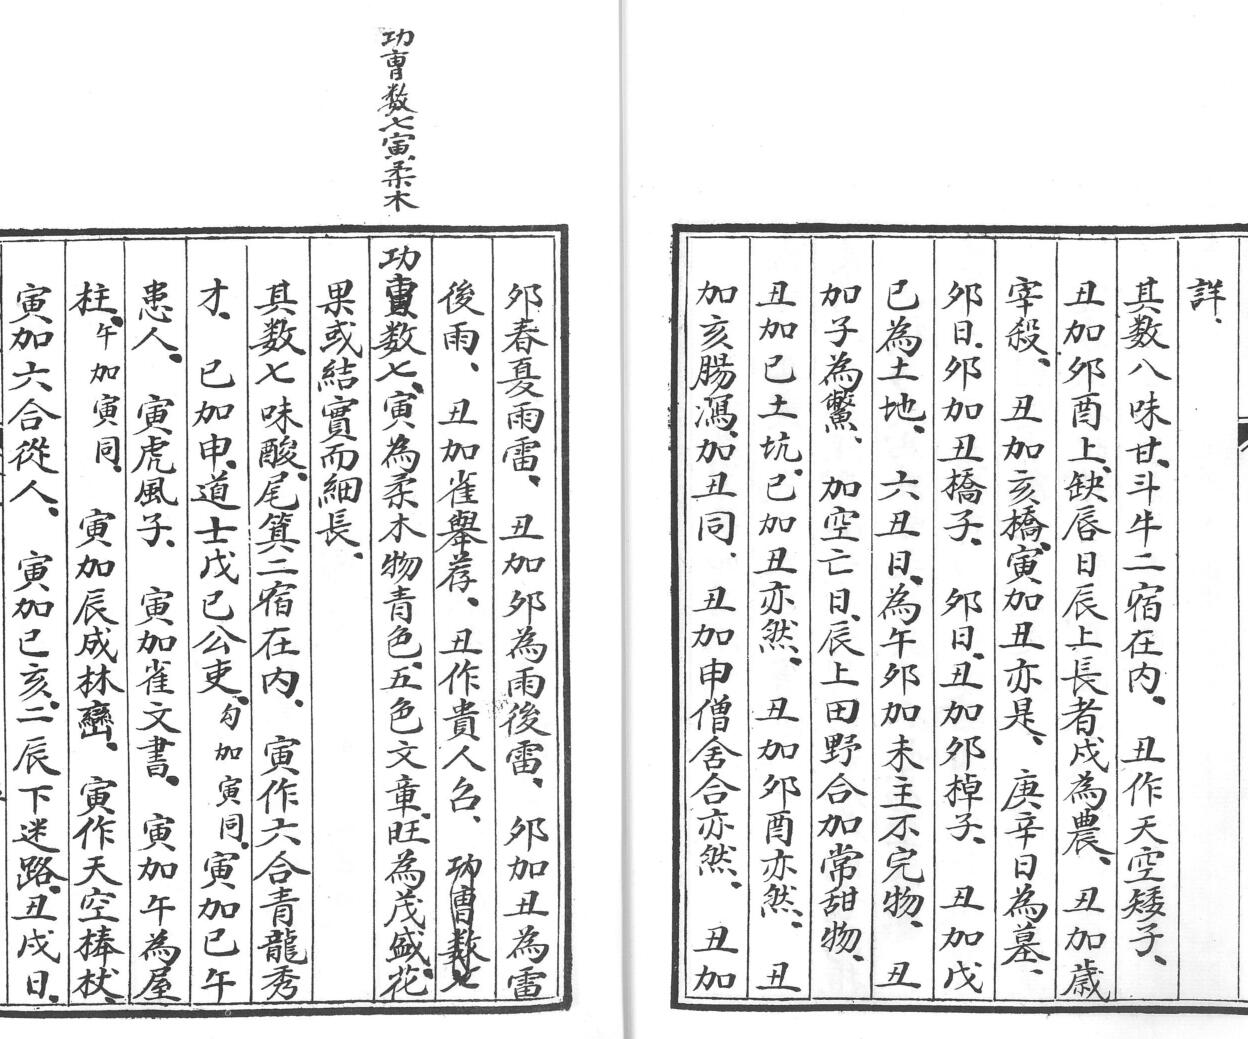 詳、
其数八味甘、斗牛二宿在内、丑作天空矮子、
丑加卯酉上、缺唇日辰上長者戌為農、丑加歳
宰殺、丑加亥橋、寅加丑亦是、庚辛日為墓、
卯日、卯加丑橋子、卯日、丑加卯棹子、丑加戊
己為土地、六丑日、為午卯加未主不完物、丑
加子為鱉、加空亡日、辰上田野合加常甜物、
丑加巳土坑、巳加丑亦然、丑加卯酉亦然、丑
加亥腸瀉、加丑同、丑加申僧舍合亦然、丑加
卯春夏雨雷、丑加卯為雨後雷、卯加丑為雷
後雨、丑加雀舉荐、丑作貴人召、功曹数七
功曹数七寅柔木
功曹数七、寅為柔木物青色、五色文章、旺為茂盛花
果或結實而細長、
其数七味酸、尾箕二宿在内、寅作六合青龍秀
才、巳加申、道士戊己公吏、勾加寅同、寅加巳午
患人、寅虎風子、寅加雀文書、寅加午為屋
柱、午加寅同、寅加辰成林巒、寅作天空棒杖、
寅加六合從人、寅加巳亥、二辰下迷路、丑戌日、